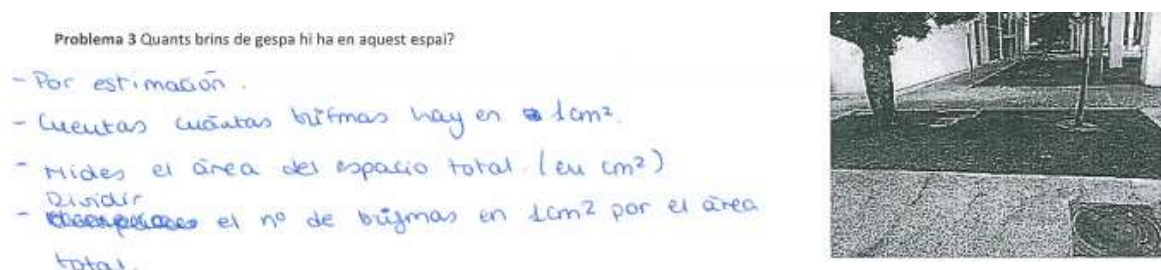 Problema 3 Quants brins de gespa hi ha en aquest espai?
- Por estimación.
- Cuentas cuántas briznas hay en 1cm².
- Mides el área del espacio total. (en cm²)
Dividir
- el nº de briznas en 1cm² por el área
total.